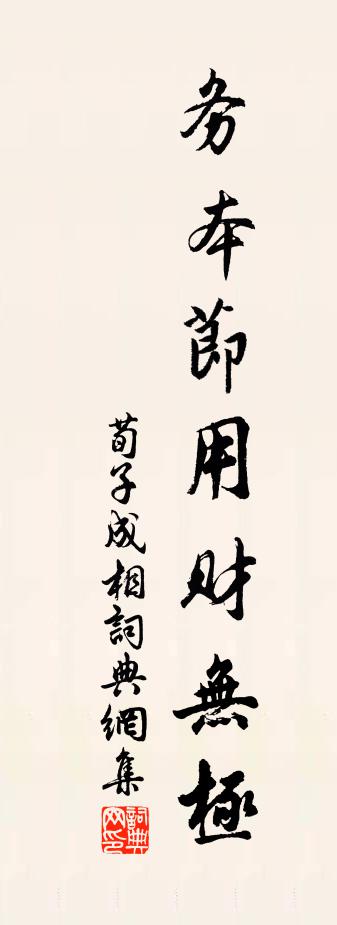 务本節用財無極
荀子成相詞典網集
詞典网印